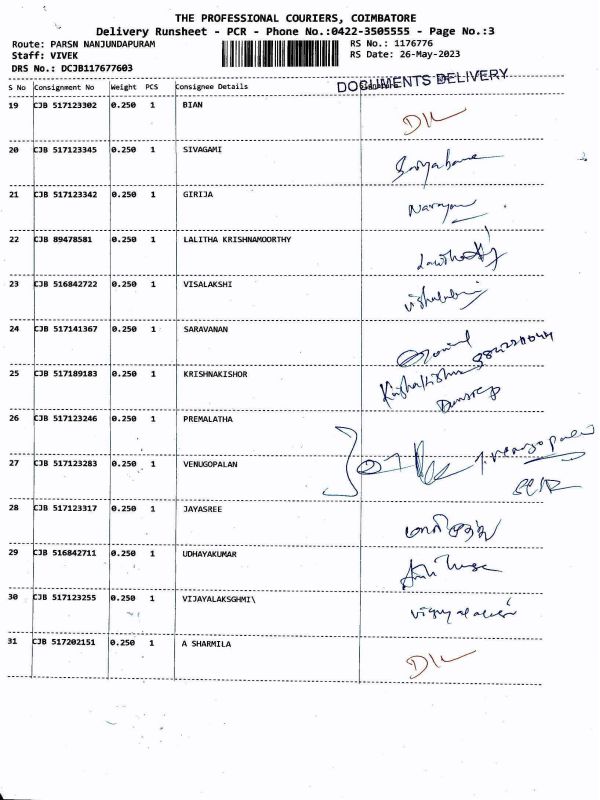 THE PROFESSIONAL COURIERS, COIMBATORE
Delivery Runsheet - PCR - Phone No.:0422-3505555 - Page No.:3
Route: PARSN NANJUNDAPURAM RS No.: 1176776
Staff: VIVEK RS Date: 26-May-2023
DRS No.: DCJB117677603
DOCUMENTS DELIVERY
S No Consignment No Weight PCS Consignee Details
19 CJB 517123302 0.250 1 BIAN
20 CJB 517123345 0.250 1 SIVAGAMI
21 CJB 517123342 0.250 1 GIRIJA Narayan
22 CJB 89478581 0.250 1 LALITHA KRISHNAMOORTHY
23 CJB 516842722 0.250 1 VISALAKSHI
24 CJB 517141367 0.250 1 SARAVANAN
25 CJB 517189183 0.250 1 KRISHNAKISHOR
26 CJB 517123246 0.250 1 PREMALATHA
27 CJB 517123283 0.250 1 VENUGOPALAN
28 CJB 517123317 0.250 1 JAYASREE
29 CJB 516842711 0.250 1 UDHAYAKUMAR
30 CJB 517123255 0.250 1 VIJAYALAKSGHMI\
31 CJB 517202151 0.250 1 A SHARMILA